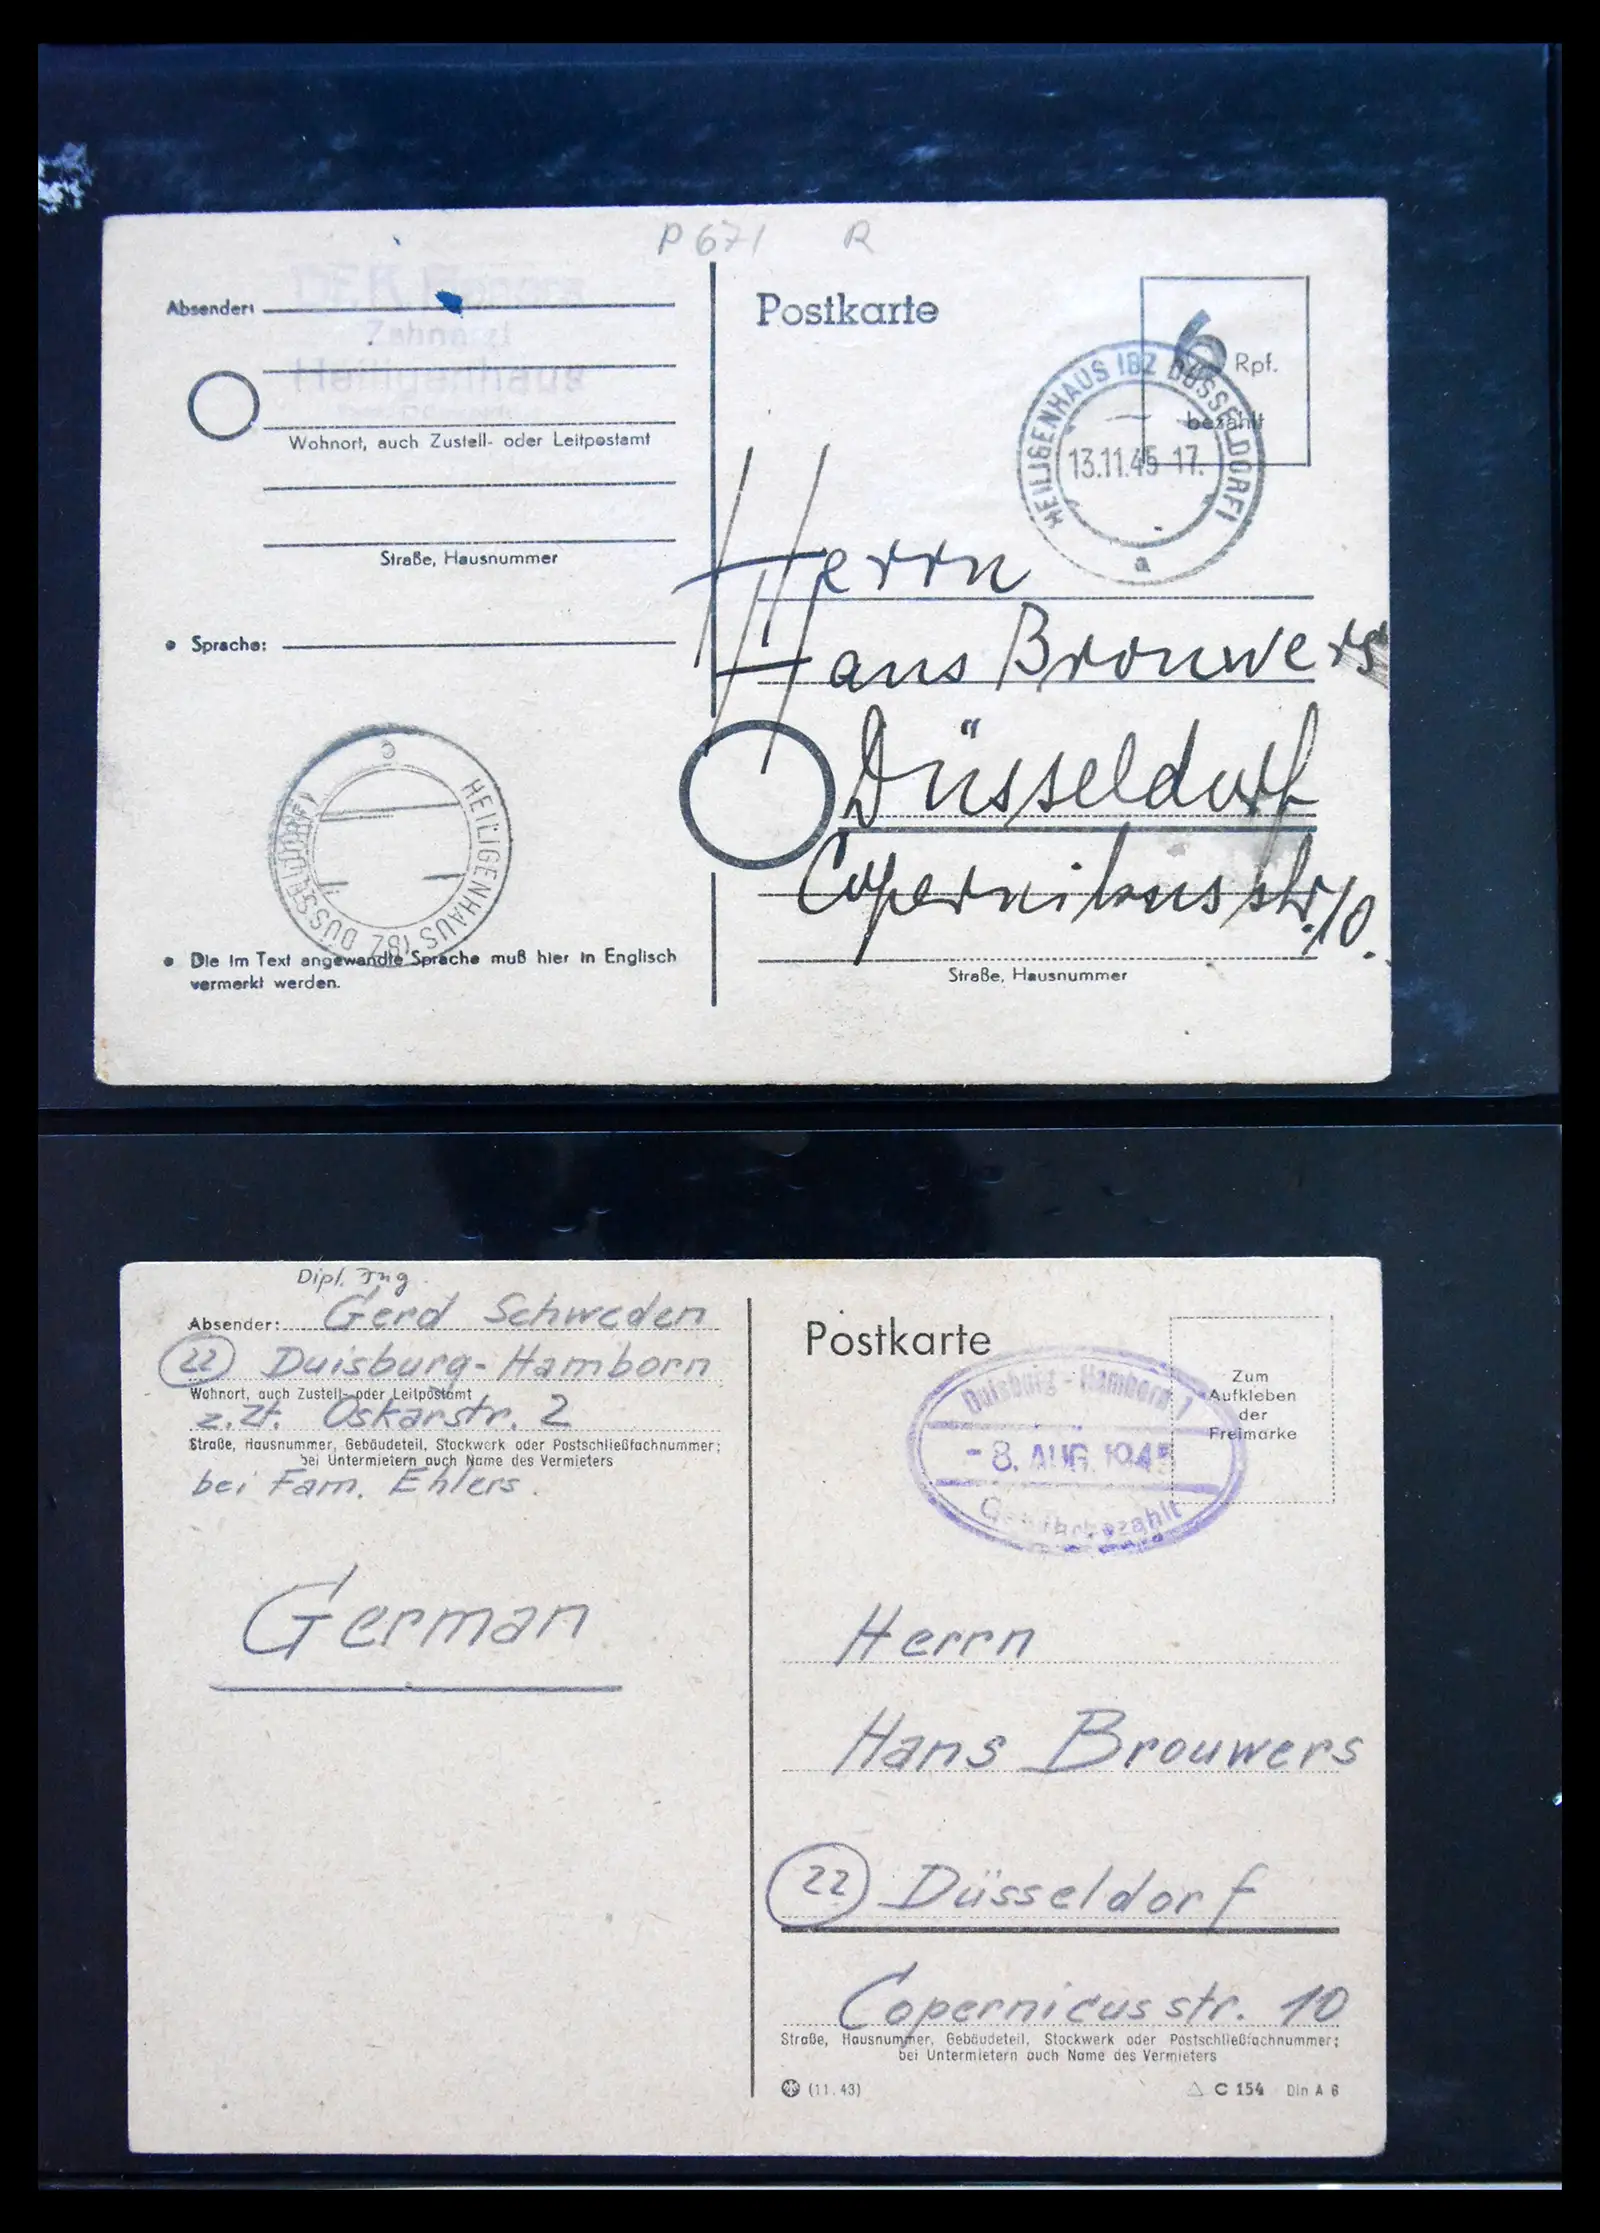 P 671 R
Absender:
Zahnarzt
Heiligenhaus
Wohnort, auch Zustell- oder Leitpostamt
Straße, Hausnummer
• Sprache:
HEILIGENHAUS (BZ DÜSSELDORF)
c
• Die im Text angewandte Sprache muß hier in Englisch
vermerkt werden.
Postkarte
6 Rpf.
bezahlt
HEILIGENHAUS (BZ DÜSSELDORF)
13.11.45 17.
a
Herrn
Hans Brouwers
Düsseldorf
Copernikusstr. 10.
Straße, Hausnummer
Dipl. Ing
Absender: Gerd Schweden
22 Duisburg-Hamborn
Wohnort, auch Zustell- oder Leitpostamt
z. Zt. Oskarstr. 2
Straße, Hausnummer, Gebäudeteil, Stockwerk oder Postschließfachnummer;
bei Untermietern auch Name des Vermieters
bei Fam. Ehlers.
German
Postkarte
Zum
Aufkleben
der
Freimarke
Duisburg-Hamborn 1
- 8. AUG. 1945
Gebührbezahlt
Herrn
Hans Brouwers
22 Düsseldorf
Copernicusstr. 10
Straße, Hausnummer, Gebäudeteil, Stockwerk oder Postschließfachnummer;
bei Untermietern auch Name des Vermieters
(11.43)
C 154 Din A 6